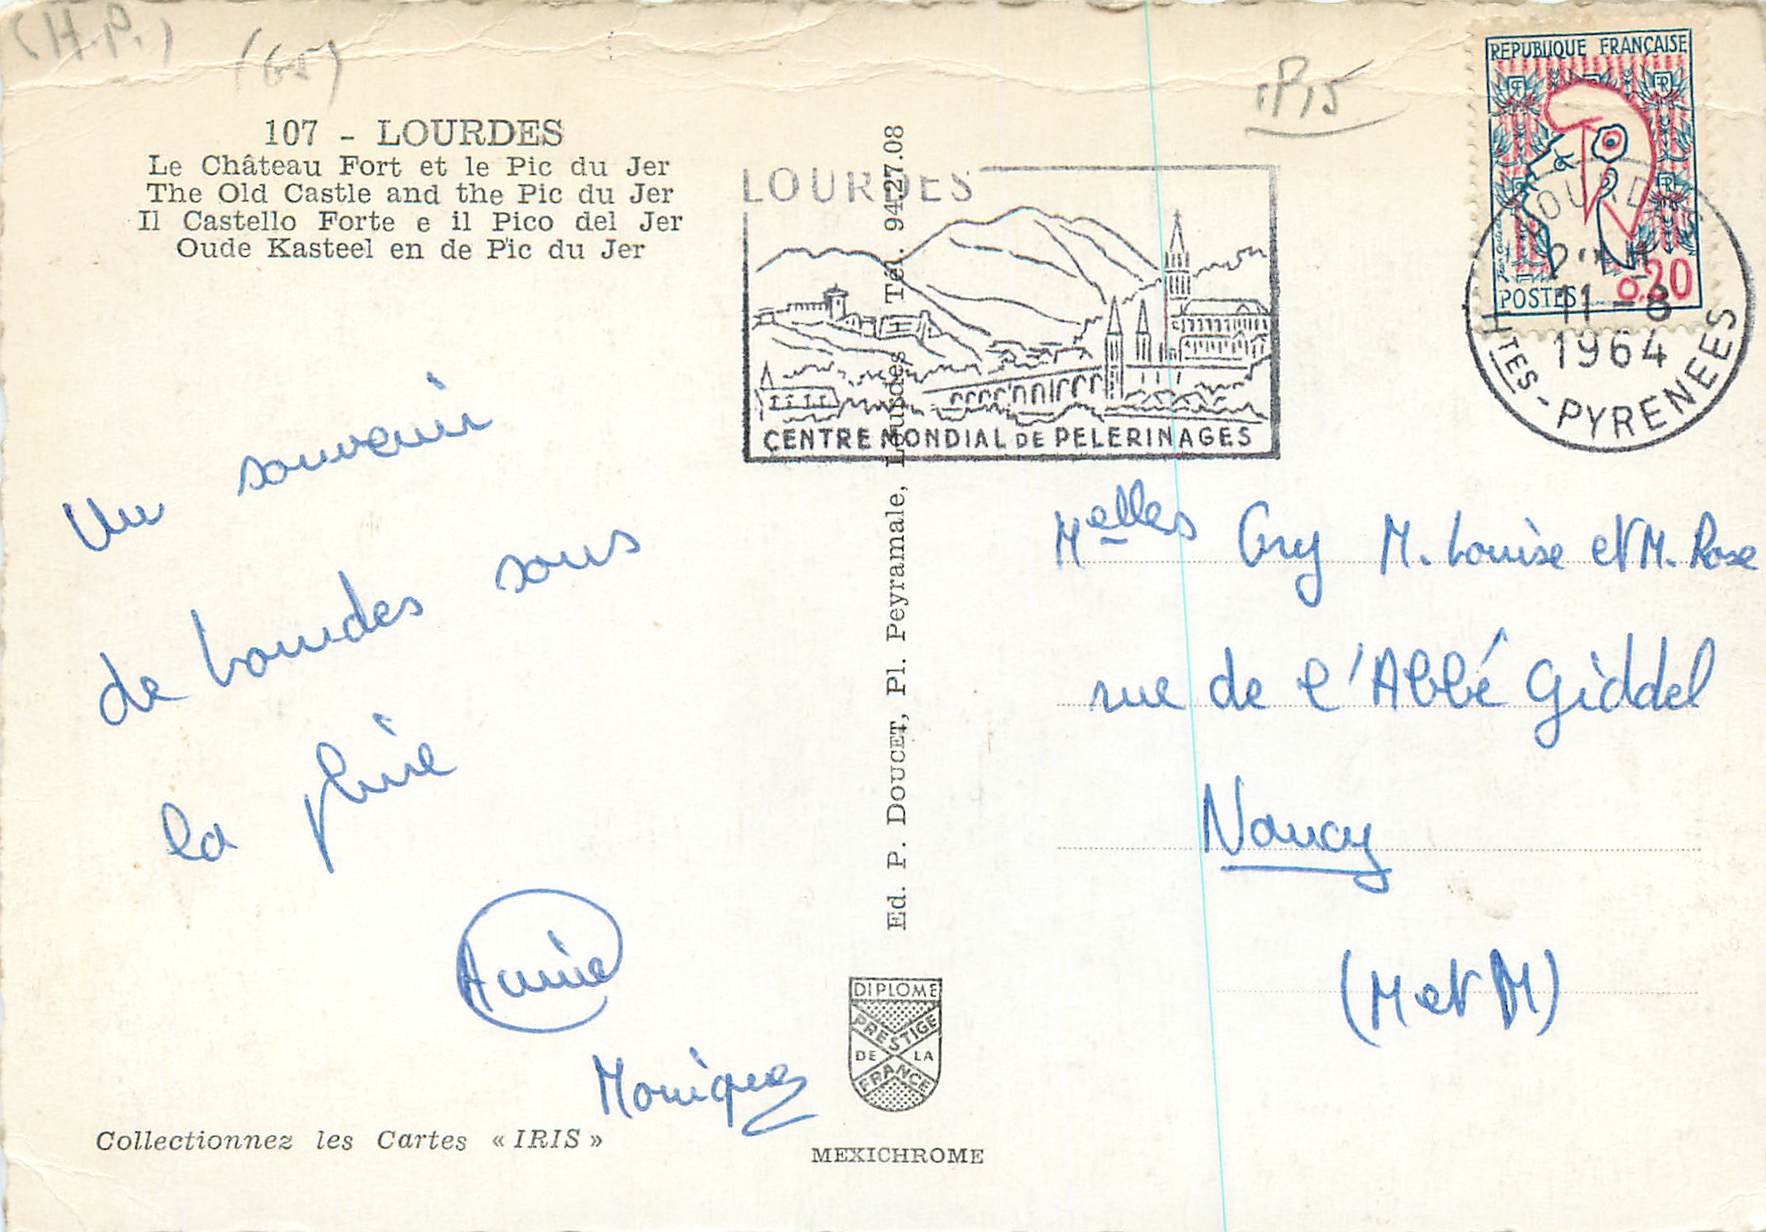 (H.P.)
(65)
107 - LOURDES
Le Château Fort et le Pic du Jer
The Old Castle and the Pic du Jer
Il Castello Forte e il Pico del Jer
Oude Kasteel en de Pic du Jer
Un souvenir
de Lourdes sous
la pluie
Annie
Monique
Collectionnez les Cartes « IRIS »
Ed. P. DOUCET, Pl. Peyramale, Lourdes - Tél. 94.27.08
DIPLOME
PRESTIGE
DE LA
FRANCE
MEXICHROME
LOURDES
CENTRE MONDIAL DE PELERINAGES
REPUBLIQUE FRANÇAISE
0,20
POSTES
LOURDES
11 - 8
1964
HTES - PYRENEES
Melles Gry M. Louise et M. Rose
rue de l'Abbé Giddel
Nancy
(M et M)